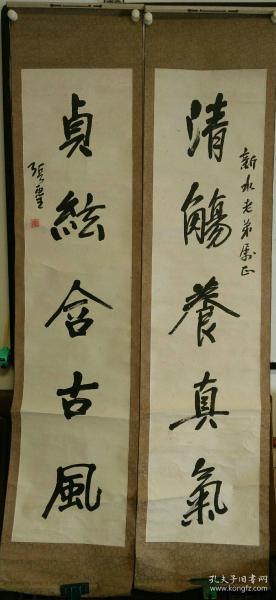 清觴養真氣
新水老弟属正
貞絃含古風
孔夫子旧书网
www.kongfz.com